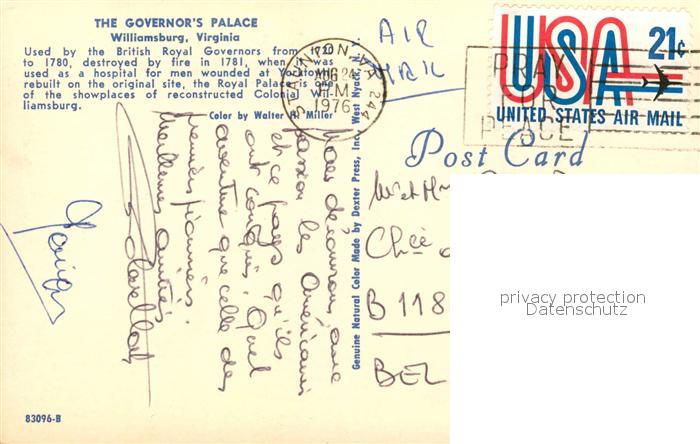 THE GOVERNOR'S PALACE
Williamsburg, Virginia
Used by the British Royal Governors from 1720
to 1780, destroyed by fire in 1781, when it was
used as a hospital for men wounded at Yorktown,
rebuilt on the original site, the Royal Palace is one
of the showplaces of reconstructed Colonial Wil-
liamsburg.
Color by Walter H. Miller
AIR
MAIL
AUG 24
1976
PRAY
FOR
PEACE
USA 21¢
UNITED STATES AIR MAIL
Post Card
Genuine Natural Color Made by Dexter Press, Inc. West Nyack,
Nous découvrons avec
passion les Américains
et ce pays qu'ils
ont conquis. Quel
aventure que celle des
premiers pionniers.
Meilleures amitiés
M et Mr
Chée
B 118
BEL
privacy protection
Datenschutz
83096-B